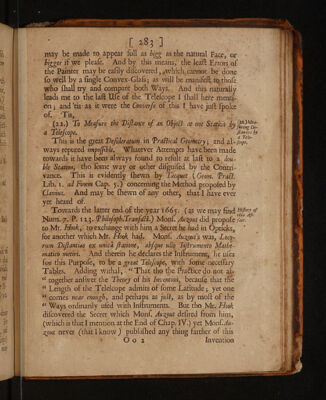 [ 283 ]
may be made to appear full as bigg as the natural Face, or
bigger if we please. And by this means, the least Errors of
the Painter may be easily discovered, which cannot be done
so well by a single Convex-Glass; as will be manifest to those
who shall try and compare both Ways. And this naturally
leads me to the last Use of the Telescope I shall here menti-
on; and 'tis as it were the Converse of this I have just spoke
of. 'Tis,
(22.) To Measure the Distance of an Object at one Station by
a Telescope.
(22.) Mea-
suring Di-
stances by
a Tele-
scope.
This is the great Desideratum in Practical Geometry; and al-
ways reputed impossible. Whatever Attempts have been made
towards it have been always found to result at last to a dou-
ble Station, tho some way or other disguised by the Contri-
vance. This is evidently shewn by Tacquet (Geom. Pract.
Lib. 1. ad Finem Cap. 5.) concerning the Method proposed by
Clavius. And may be shewn of any other, that I have ever
yet heard of.
Towards the latter end of the year 1665. (as we may find
History of
this Af-
fair.
Num. 7. P. 123. Philosoph. Transact.) Mons. Auzout did propose
to Mr. Hook, to exchange with him a Secret he had in Opticks,
for another which Mr. Hook had. Mons. Auzout's was, Loco-
rum Distantias ex unica statione, absque ullo Instrumento Mathe-
matico metiri. And therein he declares the Instrument, he uses
for this Purpose, to be a great Telescope, with some necessary
Tables. Adding withal, "That tho the Practice do not al-
" together answer the Theory of his Invention, because that the
" Length of the Telescope admits of some Latitude; yet one
" comes near enough, and perhaps as just, as by most of the
" Ways ordinarily used with Instruments. But tho Mr. Hook
discovered the Secret which Mons. Auzout desired from him,
(which is that I mention at the End of Chap. IV.) yet Mons. Au-
zout never (that I know) published any thing farther of this
O o 2
Invention